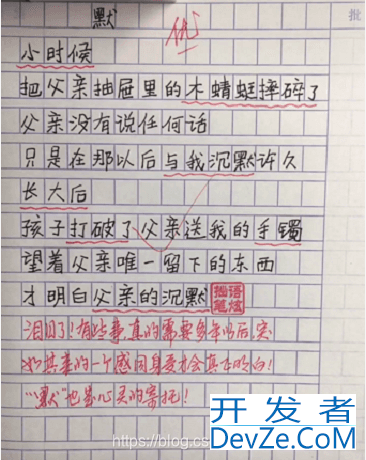 默
优
批
小时候
把父亲抽屉里的木蜻蜓摔碎了
父亲没有说任何话
只是在那以后与我沉默许久
长大后
孩子打破了父亲送我的手镯
望着父亲唯一留下的东西
才明白父亲的沉默
泪目了!有些事,真的需要多年以后,突
如其来的一个感同身受才会真正明白!
"默"也是心灵的寄托!
开发者
https://blog.cs
DevZe.CoM